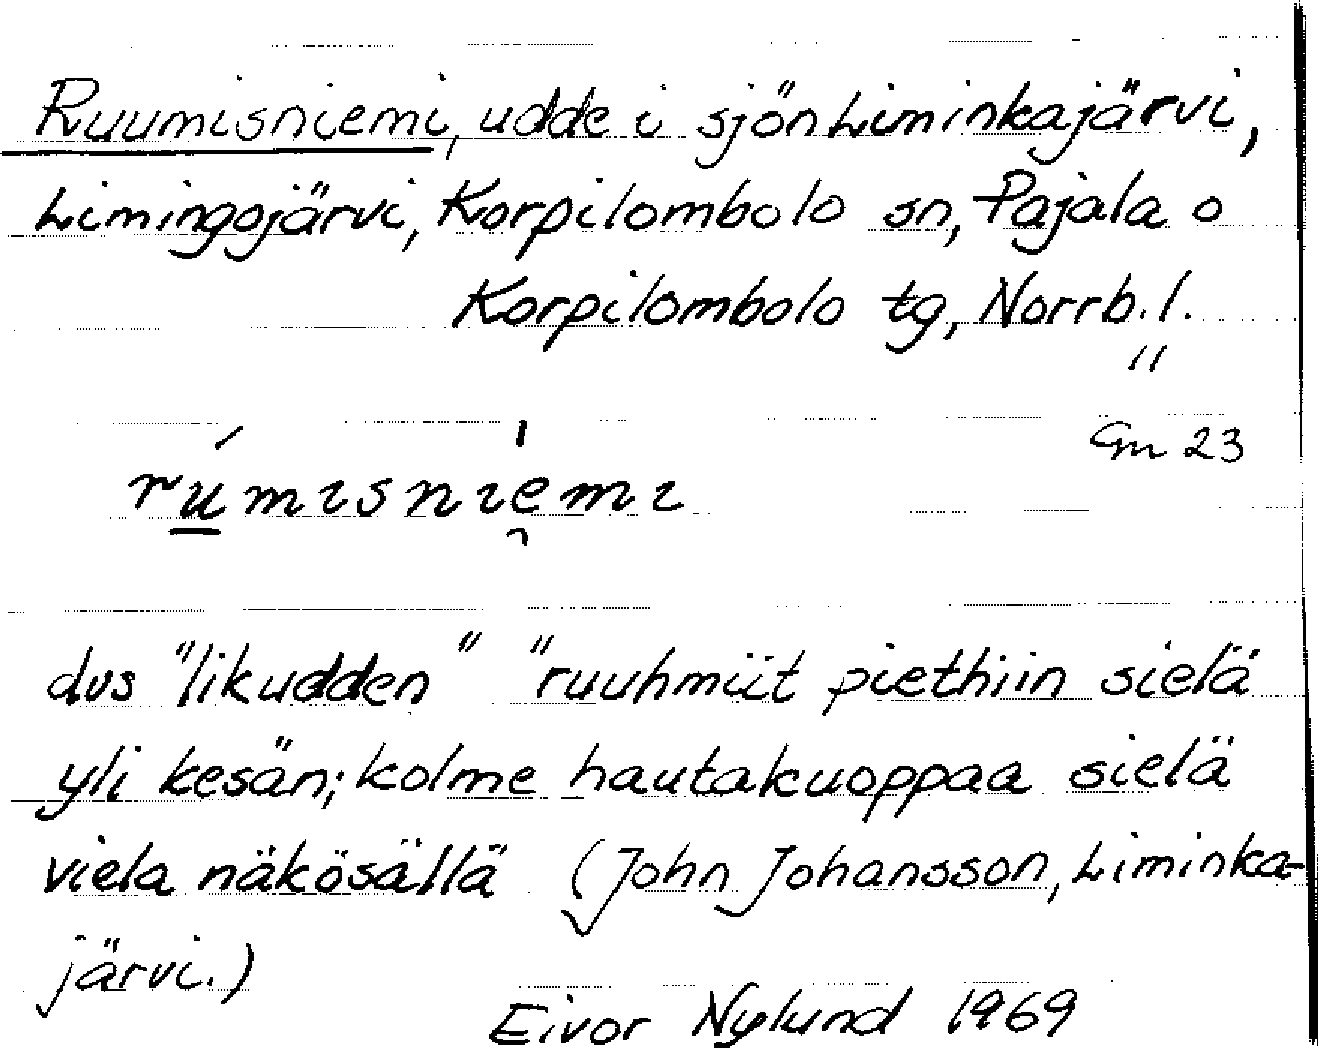 Ruumisniemi, udde i sjön Liminkajärvi,
Limingojärvi, Korpilombolo sn, Pajala o
Korpilombolo tg, Norrb. l.
"
Gm 23
rúmɪsnɪemɪ
dvs "likudden" "ruuhmiit piethiin sielä
yli kesän; kolme hautakuoppaa sielä
viela näkösällä (John Johansson, Liminka-
järvi.)
Eivor Nylund 1969